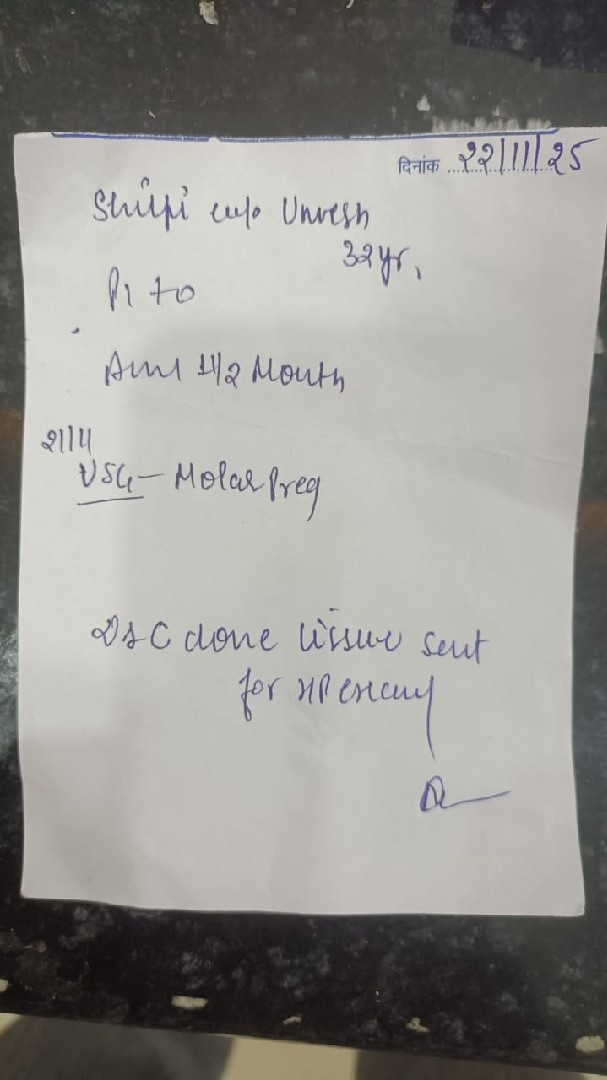 दिनांक 22/11/25
Shilpi w/o Unresh
32 yr,
P1 +0
Am 1 1/2 Month
21/11
USG - Molar Preg
D&C done tissue sent
for HP exam